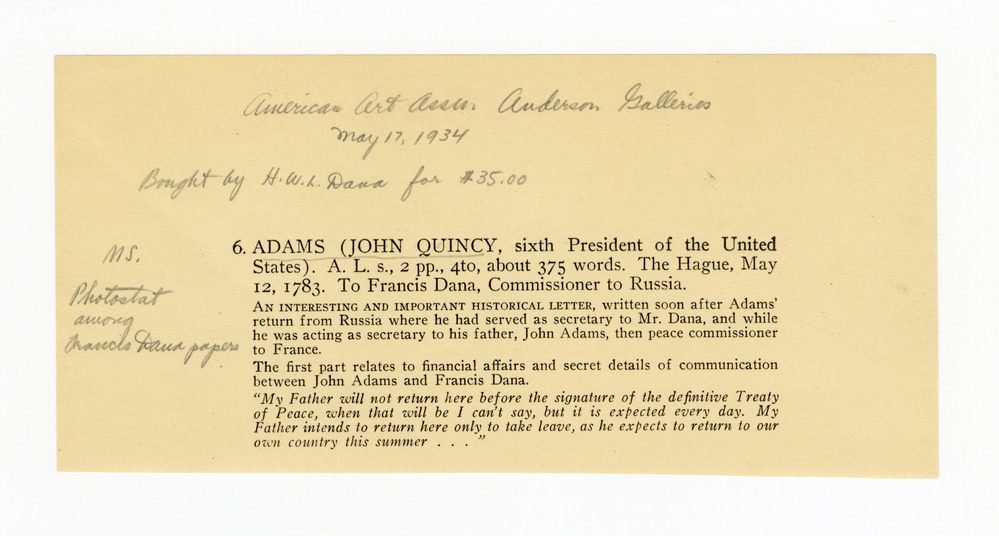 American Art Assn. Anderson Galleries
May 17, 1934
Bought by H.W.L. Dana for $35.00
MS.
Photostat
among
Francis Dana papers
6. ADAMS (JOHN QUINCY, sixth President of the United
States). A. L. s., 2 pp., 4to, about 375 words. The Hague, May
12, 1783. To Francis Dana, Commissioner to Russia.
AN INTERESTING AND IMPORTANT HISTORICAL LETTER, written soon after Adams'
return from Russia where he had served as secretary to Mr. Dana, and while
he was acting as secretary to his father, John Adams, then peace commissioner
to France.
The first part relates to financial affairs and secret details of communication
between John Adams and Francis Dana.
"My Father will not return here before the signature of the definitive Treaty
of Peace, when that will be I can't say, but it is expected every day. My
Father intends to return here only to take leave, as he expects to return to our
own country this summer . . . "